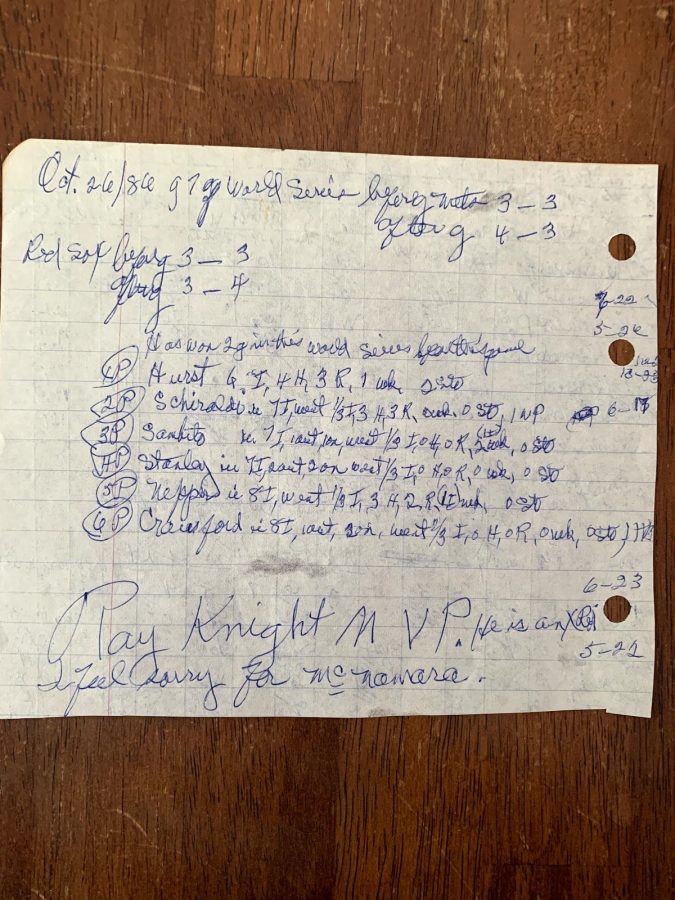 Oct. 26/86 g 7 of World Series before g Mets 3 – 3
after g 4 – 3
Red Sox before g 3 – 3
after g 3 – 4
7-22
5-26
Has won 2 g in this world series before this game
1P Hurst 6 I, 4 H, 3 R, 1 wk 0 Sto
2P Schiraldi in 7 I, went 1/3 I, 3 H, 3 R, 0 wk. 0 Sto, 1 WP 6-17
3P Sambito in 7 I, 1 out, 1 on, went 1/3 I, 0 H, 0 R, 2 wk, 0 Sto
4P Stanley in 7 I, 2 on went 1/3 I, 0 H, 0 R, 0 wk, 0 Sto
5P Nipper in 8 I, went 1/3 I, 3 H, 2 R, wk, 0 Sto
6P Crawford in 8 I, 1 out, 2 on, went 2/3 I, 0 H, 0 R, 0 wk, 0 Sto,
6-23
Ray Knight M V P. He is an X Red
5-22
I feel sorry for McNamara.